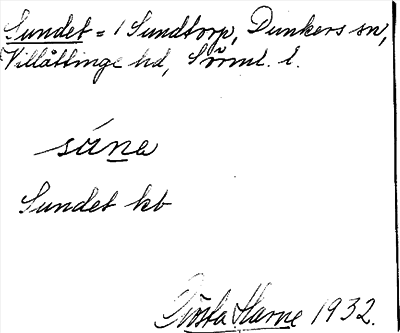 Sundet = 1 Sundtorp, Dunkers sn,
Villåttinge hd, Sörml. l.
såna
Sundet kb
Gösta Harne 1932.